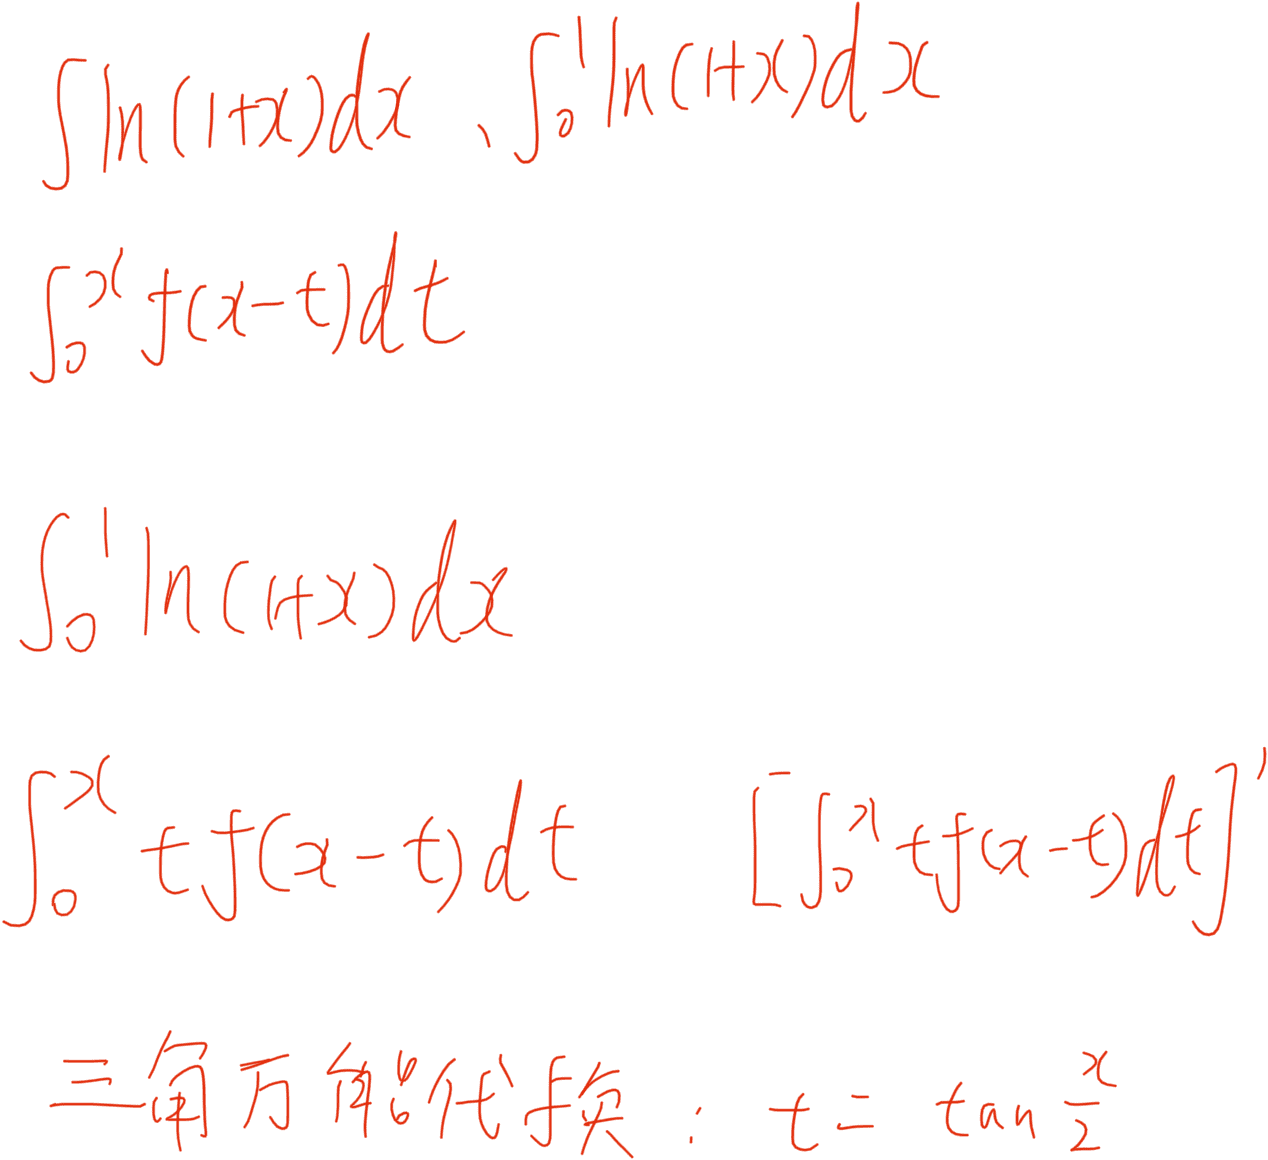 ∫ln(1+x)dx、∫₀¹ln(1+x)dx
∫₀ˣf(x-t)dt
∫₀¹ln(1+x)dx
∫₀ˣtf(x-t)dt [∫₀ˣtf(x-t)dt]'
三角万能代换：t=tan x/2